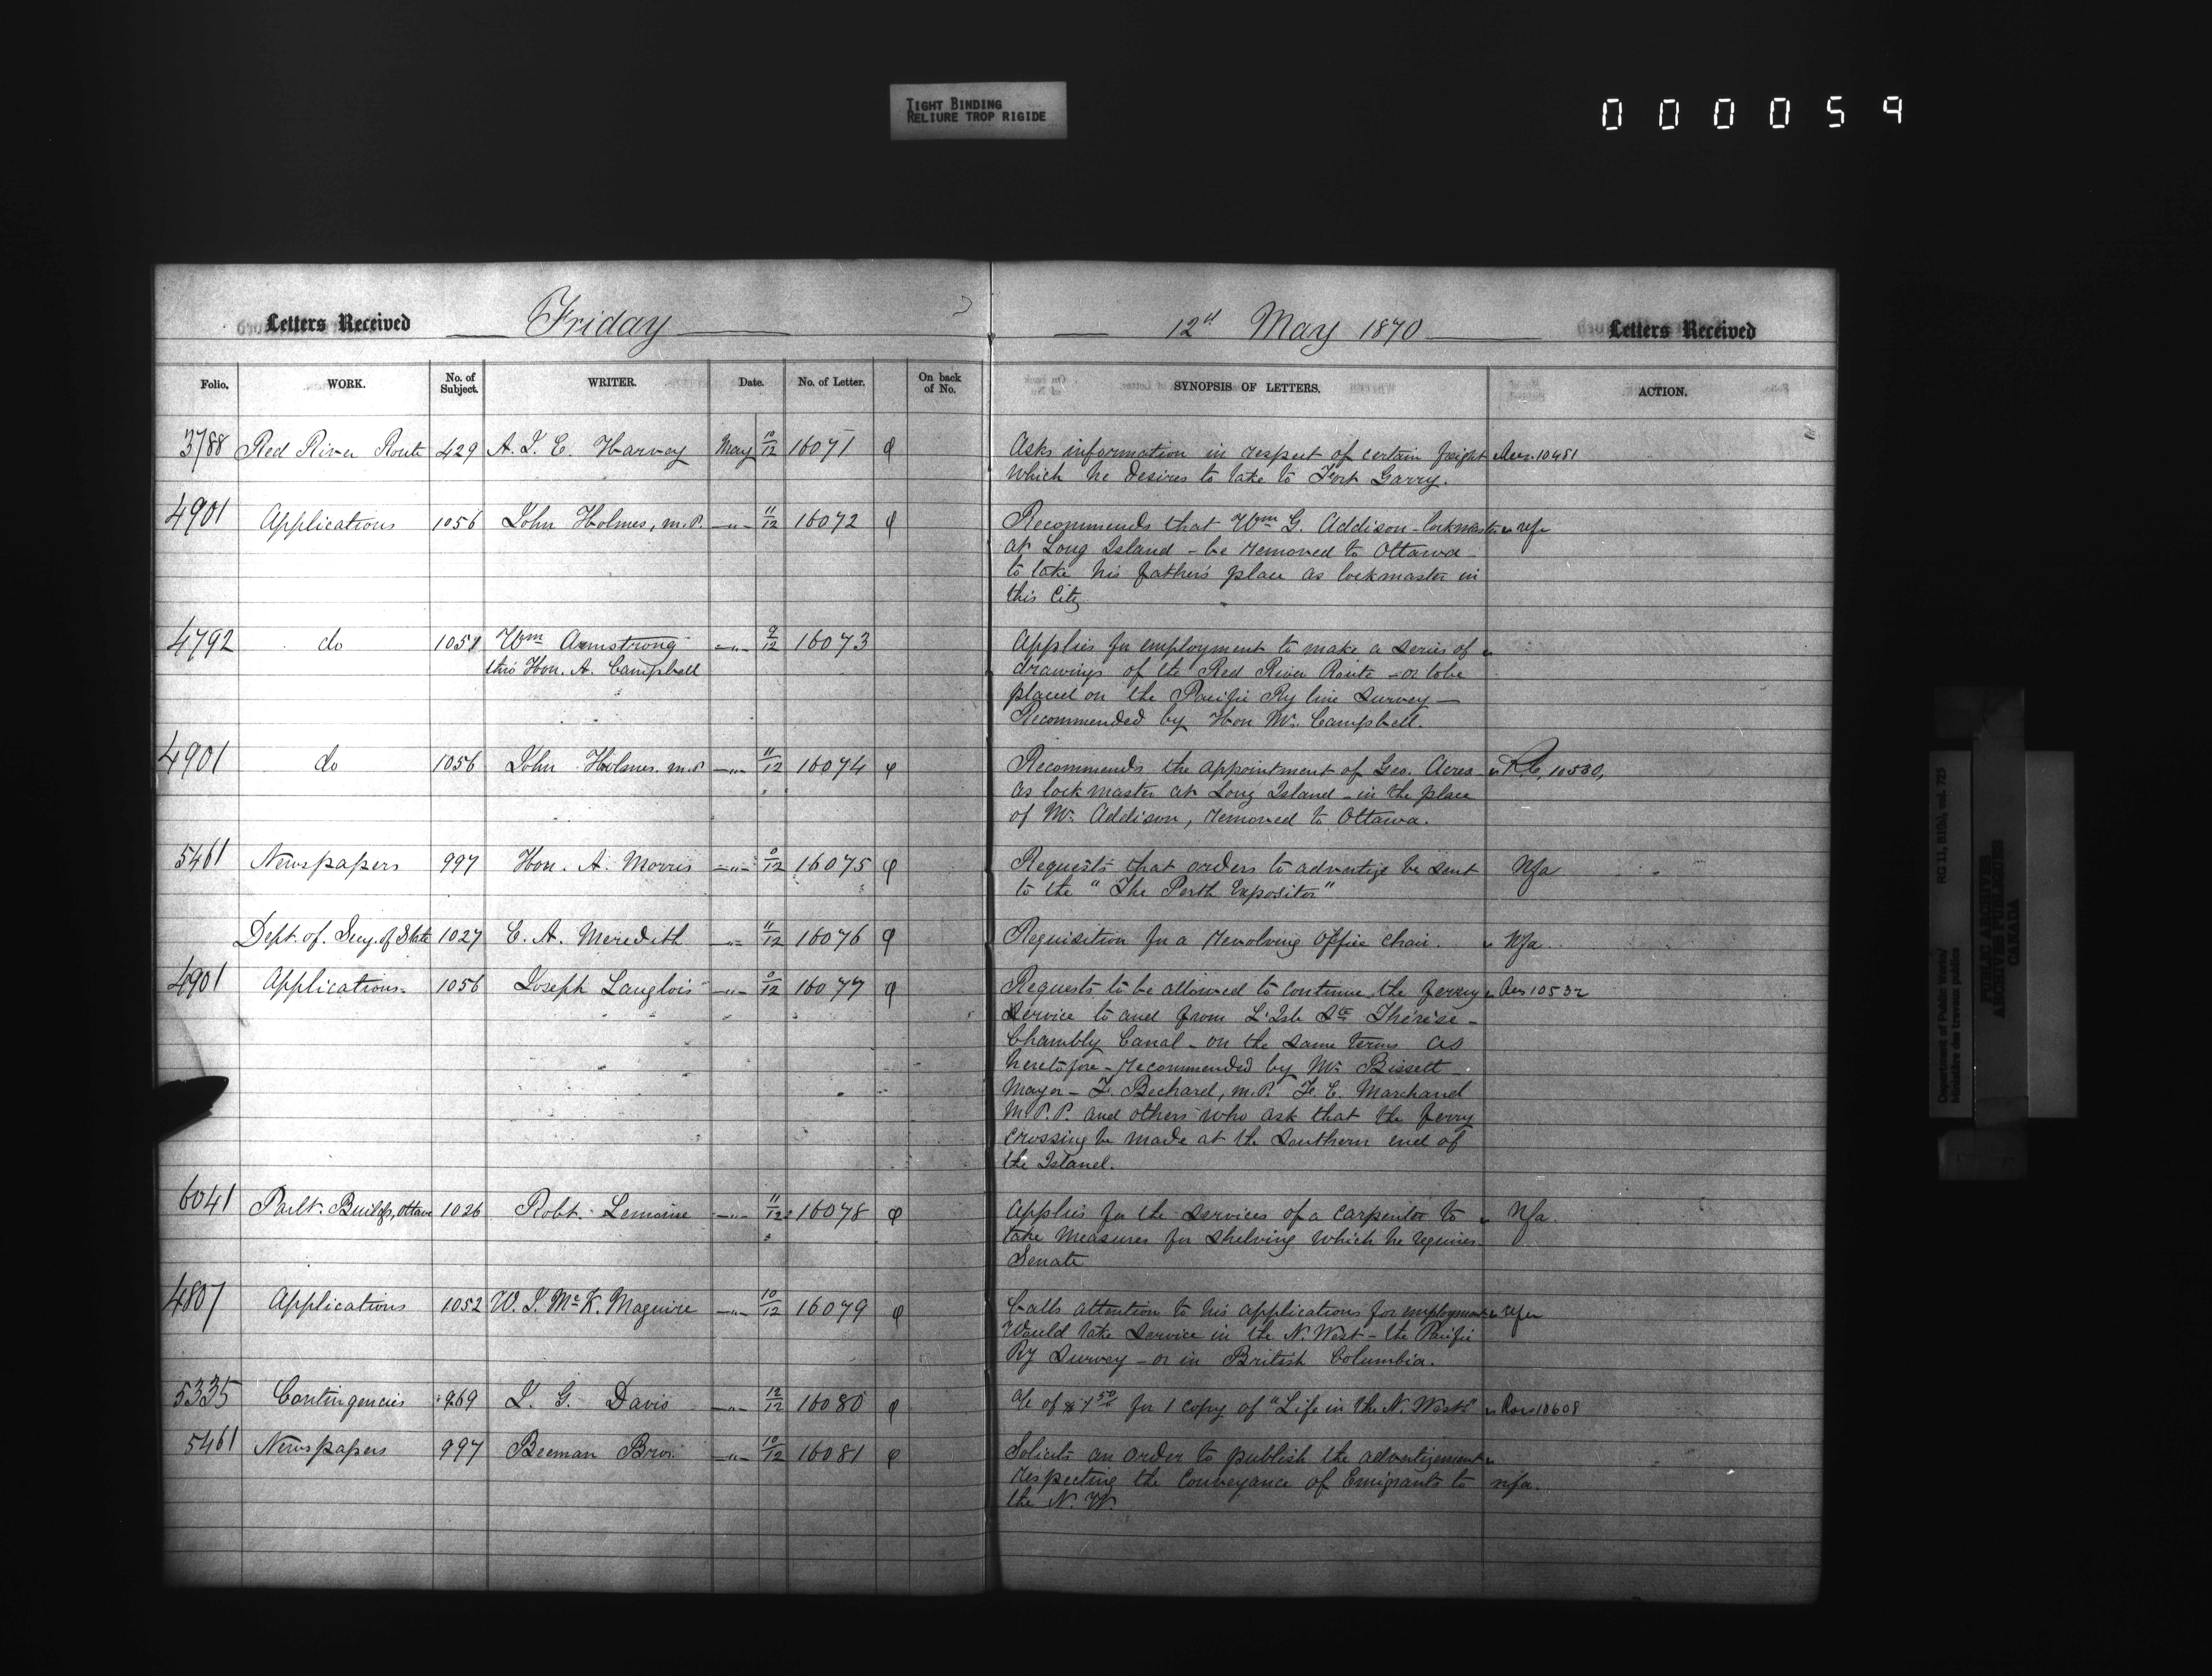 TIGHT BINDING
RELIURE TROP RIGIDE
000059
Letters Received Friday
12th May 1870 Letters Received
Folio. WORK. No. of Subject. WRITER. Date. No. of Letter. On back of No. SYNOPSIS OF LETTERS. ACTION.
3788 Red River Route 429 A. J. C. Harvey May 10/12 16071 φ Asks information in respect of certain freight Ans. 10481
which he desires to take to Fort Garry.
4901 Applications 1056 John Holmes, M.P. —"— 11/12 16072 φ Recommends that Wm G. Addison - lockmaster " refr
at Long Island - be removed to Ottawa -
to take his father's place as lockmaster in
this City
4792 do Wm Armstrong —"— 9/12 16073 Applies for employment to make a series of "
thro Hon. A. Campbell drawings of the Red River Route - or to be
placed on the Pacific Ry line Survey —
Recommended by Hon Mr. Campbell.
4901 do 1056 John Holmes. M.P. —"— 11/12 16074 φ Recommends the appointment of Geo. Acres " 10530,
as lock master at Long Island - in the place
of Mr. Addison, removed to Ottawa.
5461 Newspapers 997 Hon. A. Morris —"— 9/12 16075 φ Requests that orders to advertize be sent Nfa
to the "The Perth Expositor"
Dept. of Secy. of State 1027 E. A. Meredith —"— 11/12 16076 φ Requisition for a revolving office chair. " Nfa
4901 Applications. 1056 Joseph Langlois —"— 9/12 16077 φ Requests to be allowed to continue the ferry " Ans 10532
Service to and from L'Isle Ste Thérèse -
Chambly Canal - on the same terms as
heretofore - recommended by Mr. Bissett -
Mayor - F. Bechard, M.P. F. G. Marchand
M.P.P. and others who ask that the ferry
crossing be made at the Southern end of
the Island.
6041 Parlt. Buildgs, Ottawa 1026 Robt. Lemoine —"— 11/12 16078 φ Applies for the services of a carpenter to " Nfa.
take measures for shelving which he requires
Senate
4807 Applications 1052 W. J. McK. Maguire —"— 10/12 16079 φ Calls attention to his applications for employment " refr
Would take service in the N. West - the Pacific
Ry Survey - or in British Columbia.
5335 Contingencies 969 J. G. Davis —"— 12/12 16080 φ a/c of $1 50 for 1 copy of "Life in the N. West" " 10608
5461 Newspapers 997 Beeman Bros. —"— 10/12 16081 φ Solicits an order to publish the advertizement "
respecting the Conveyance of Emigrants to nfa.
the N. W.
Department of Public Works/ RG 11, B1(b), vol. 725
Ministère des travaux publics
PUBLIC ARCHIVES
ARCHIVES PUBLIQUES
CANADA